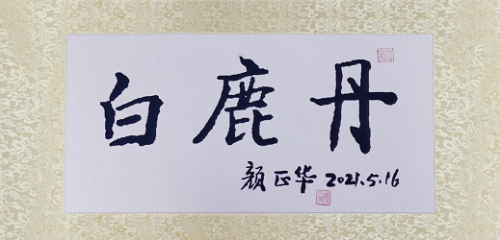 白鹿丹
颜正华 2021.5.16